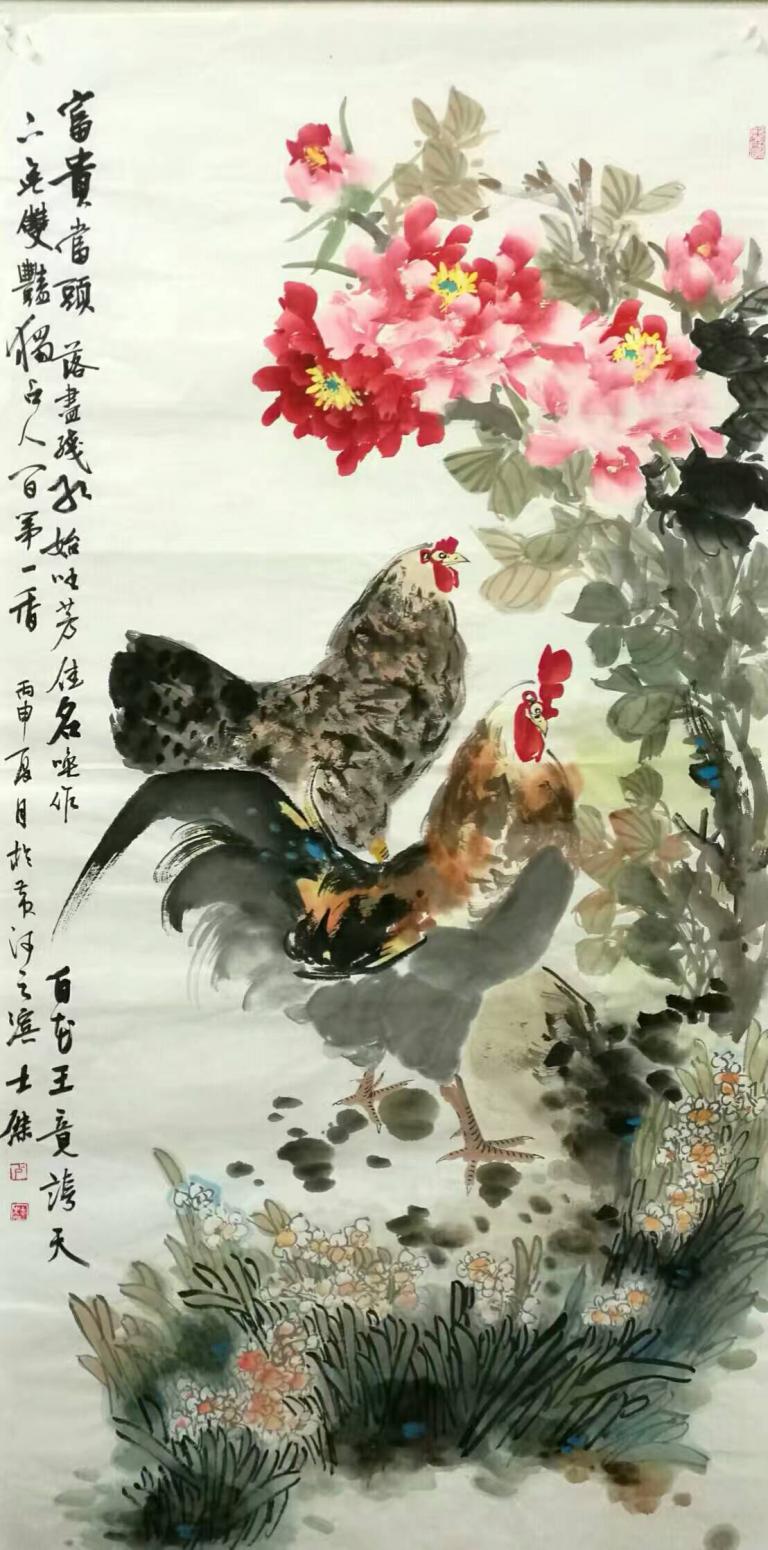 富貴當頭 落盡殘红始吐芳 佳名喚作百花王 竟誇天
下無雙艷 獨占人间第一香 丙申夏月於黄河之濱 士傑